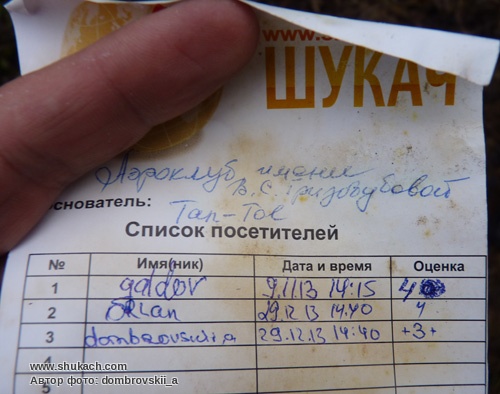 www.s
ШУКАЧ
Аэроклуб имени
В.С. Гризодубовой
снователь: Tan-Tol
Список посетителей
№ Имя(ник) Дата и время Оценка
1 galdov 9.11.13 14:15 4
2 ORLan 29.12.13 14:40 4
3 dombrovskii_a 29.12.13 14:40 +3+
4
5
www.shukach.com
Автор фото: dombrovskii_a